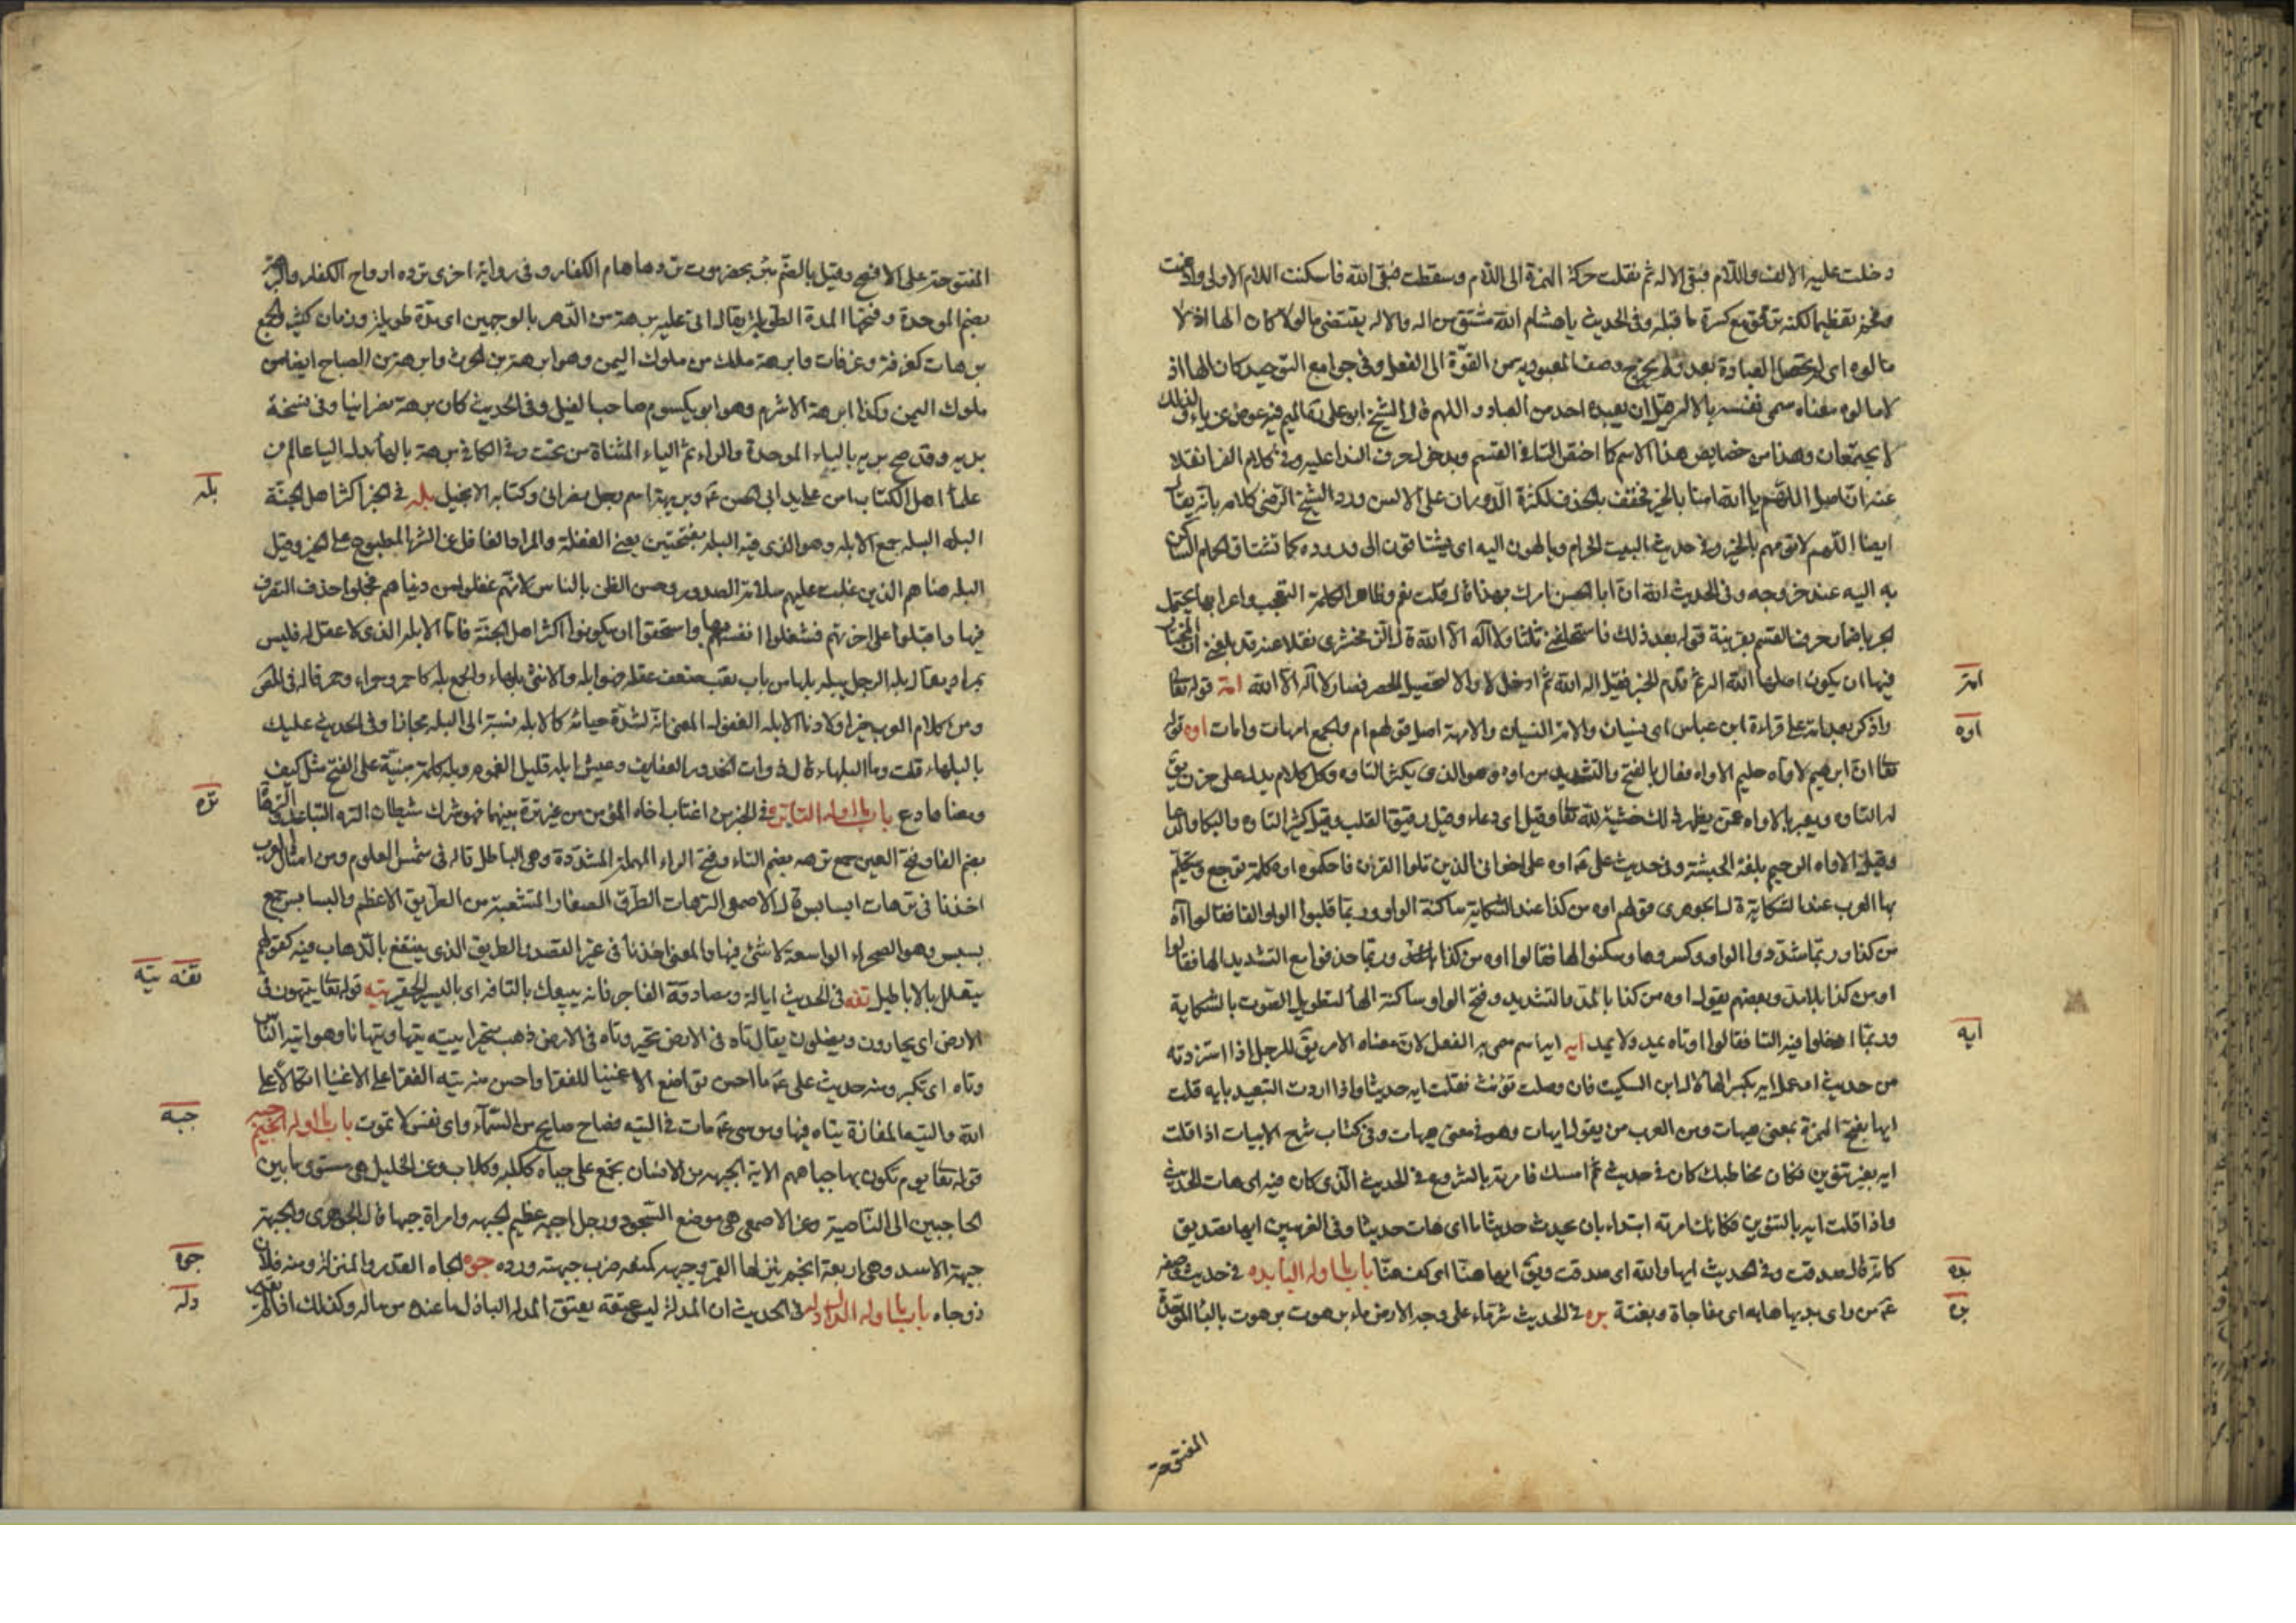 دخلت عليه الالف واللام فبقى الاله ثم نقلت حركة الهمزة الى اللام وسقطت فبقى الله فاسكنت اللام الاولى وادغمت
وفخم تعظيما لكنه ترقق مع كسرة ما قبله وفى الحديث يا هشام الله مشتق من اله والاله يقتضى مالوها كان الها اذ لا
مالوه اى لم تحصل العبادة بعد ولم يخرج وصف المعبودية من القوة الى الفعل وفى جوامع التوحيد كان الها اذ
لا مالوه معناه سمى نفسه بالاله قبل ان يعبده احد من العباد و اللهم قال الشيخ ابو على الميم فيه عوض عن ياء ولذلك
لا يجتمعان وهذا من خصايص هذا الاسم كما اختص التا فى القسم وبدخول حرف الندا عليه وفى كلام الفرا نقلا
عنه ان اصل اللهم يا الله امنا بالخير فخفف بالحذف لكثرة الدوران على الالسن ورد الشيخ الرضى كلامه بانه يقال
ايضا اللهم لا تؤمهم بالخير وفى حديث البيت الحرام ويالهون اليه اى يشتاقون الى وروده كما تشتاق الحمام الساكن
به اليه عند خروجه وفى الحديث الله ان ابا الحسن امرك بهذا قال قلت نعم وظاهر الكلمة التعجب واعرابها يحتمل
الجر باضمار حرف القسم بقرينة قوله بعد ذلك فاستحلفنى ثلثا ولا اله الا الله قال الزمخشرى نقلا عنه قد بلغنى ان المختار
فيها ان يكون اصلها الله اله ثم قدم الخبر فقيل اله الله ثم ادخل لا والا لتحصيل الحصر فصار لا اله الا الله امه قوله تعالى
واذكر بعد امه على قراءة ابن عباس اى نسيان والامه النسيان والامهة اصل قولهم ام والجمع امهات وامات اوه قوله
تعالى ان ابرهيم لاواه حليم الاواه فعال بالفتح والتشديد من اوه وهو الذى يكثر التاوه وكل كلام يدل على حزن يقال
له التاوه ويعبر بالاواه عمن يظهر ذلك خشية لله تعالى وقيل اى دعاء وقيل رقيق القلب وقيل كثير التاوه والبكا والدعا
وقيل الاواه الرحيم بلغة الحبشة وفى حديث على ع اوه على اخوانى الذين تلوا القران فاحكموه اوه كلمة توجع وتتكلم
بها العرب عند الشكاية قال الجوهرى قولهم اوه من كذا عند الشكاية ساكنة الواو وربما قلبوا الواو الفا فقالوا آه
من كذا وربما شددوا الواو وكسروها وسكنوا الها فقالوا اوه من كذا وربما حذفوا مع التشديد الها فقالوا
او من كذا بلا مد وبعضهم يقول اوه من كذا بالمد والتشديد وفتح الواو ساكنة الهاء لتطويل الصوت بالشكاية
وربما ادخلوا فيه التا فقالوا اوتاه يمد ولا يمد ايه ايه اسم سمى به الفعل لان معناه الامر يقال للرجل اذا استزدته
من حديث او عمل ايه بكسر الهاء قال ابن السكيت فان وصلت نونت فقلت ايه حديثا واذا اردت التبعيد بايه قلت
ايها بفتح الهمزة بمعنى هيهات ومن العرب من يقول ايهات وهو فى معنى هيهات وفى كتاب شرح الابيات اذا قلت
ايه بغير تنوين فكان مخاطبك كان فى حديث ثم امسك فامرته بالشروع فى الحديث الذى كان فيه اى هات الحديث
واذا قلت ايه بالتنوين فكانك امرته ابتداء بان يحدث حديثا ما اى هات حديثا وفى الغريبين ايها تصديق
كانه قال صدقت وفى الحديث ايها والله اى صدقت ويقال ايها عنا اى كف عنا باب ما اوله البا بده فى حديث وصفه
ع من راى بديها هابه اى مفاجاة وبغتة بره فى الحديث شر ماء على وجه الارض ماء برهوت برهوت بالباء الموحدة
المفتوحة
امه
اوه
ايه
بده
بره
المفتوحة على الافصح وقيل بالضم بئر بحضرموت تردها هام الكفار وفى رواية اخرى ترده ارواح الكفار والبرهة
بضم الموحدة وفتحها المدة الطويلة يقال اتى عليه برهة من الدهر بالوجهين اى مدة طويلة وزمان كثير والجمع
برهات كغرفة وغرفات وابرهة ملك من ملوك اليمن وهو ابرهة بن الحرث وابرهة بن الصباح ايضا من
ملوك اليمن وكذا ابرهة الاشرم وهو ابو يكسوم صاحب الفيل وفى الحديث كان برهة نصرانيا وفى نسخة
بريه وقد صح بريه بالباء الموحدة والراء ثم الياء المثناة من تحت وفى الكافى برهة بالهاء بدل اليا عالم من
علماء اهل الكتاب امن على يد ابى الحسن ع وبريهة اسم رجل نصرانى وكتابه الانجيل بله فى الخبر اكثر اهل الجنة
البله البله جمع الابله وهو الذى فيه البله بفتحتين يعنى الغفلة والمراد الغافل عن الشر المطبوع على الخير وقيل
البله هنا هم الذين غلبت عليهم سلامة الصدور وحسن الظن بالناس لانهم غفلوا من دنياهم فجهلوا حذق التصرف
فيها واقبلوا على اخرتهم فشغلوا انفسهم بها واستحقوا ان يكونوا اكثر اهل الجنة فاما الابله الذى لا عقل له فليس
بمراد يقال بله الرجل يبله بلها من باب تعب ضعف عقله فهو ابله والانثى بلهاء والجمع بله كاحمر وحمراء وحمر قاله فى المص
ومن كلام العرب خير اولادنا الابله الغفول المعنى انه لشدة حيائه كالابله نسبة الى البله مجازا وفى الحديث عليك
بالبلهاء قلت وما البلهاء قال ذوات الخدور العفايف وعيش ابله قليل الغموم وبله كلمة مبنية على الفتح مثل كيف
ومعناها دع باب ما اوله التا تره فى الخبر من اغتاب اخاه المؤمن من غير ترة بينهما فهو شرك شيطان التره التباعد والترهات
بضم الفا وفتح العين جمع ترهه بضم التاء وفتح الراء المهملة المشددة وهى الباطل قاله فى شمس العلوم ومن امثال العرب
اخذنا فى ترهات البسابس قال الاصمعى الترهات الطرق الصغار المتشعبة من الطريق الاعظم والبسابس جمع
بسبس وهو الصحراء الواسعة لا شئ فيها والمعنى اخذنا فى غير القصد والطريق الذى ينتفع بالذهاب فيه كقولهم
يتعلل بالاباطيل تفه فى الحديث اياك ومصادقة الفاجر فانه يبيعك بالتافه اى باليسير الحقير تيه قوله تعالى يتيهون فى
الارض اى يحارون ويضلون يقال تاه فى الارض تحير وتاه فى الارض ذهب متحيرا يتيه تيها وتيهانا وهو اتيه الناس
وتاه اى تكبر ومنه حديث على ع ما احسن تواضع الاغنيا للفقرا واحسن منه تيه الفقرا على الاغنيا اتكالا على
الله والتيه المفازة يتاه فيها وموسى ع مات فى التيه فصاح صايح من السماء واى نفس لا تموت باب ما اوله الجيم جبه
قوله تعالى يوم تكوى بها جباههم الاية الجبهه من الانسان تجمع على جباه ككلبه وكلاب وعن الخليل هى مستوى ما بين
الحاجبين الى الناصية وعن الاصمعى هى موضع السجود ورجل اجبه عظيم الجبهه وامراة جبهاء قال الجوهرى والجبهة
جبهة الاسد وهى اربعة انجم ينزلها القمر وجبهه كمنعه ضرب جبهته ورده جوه الجاه القدر والمنزلة ومنه فلان
ذو جاه باب ما اوله الدال دله فى الحديث ان المدله ليس عتقه بعتق المدله الباذل ما عنده من ماله وكذلك اذا لم
بله
تره
تفه تيه
جبه
جوه
دله